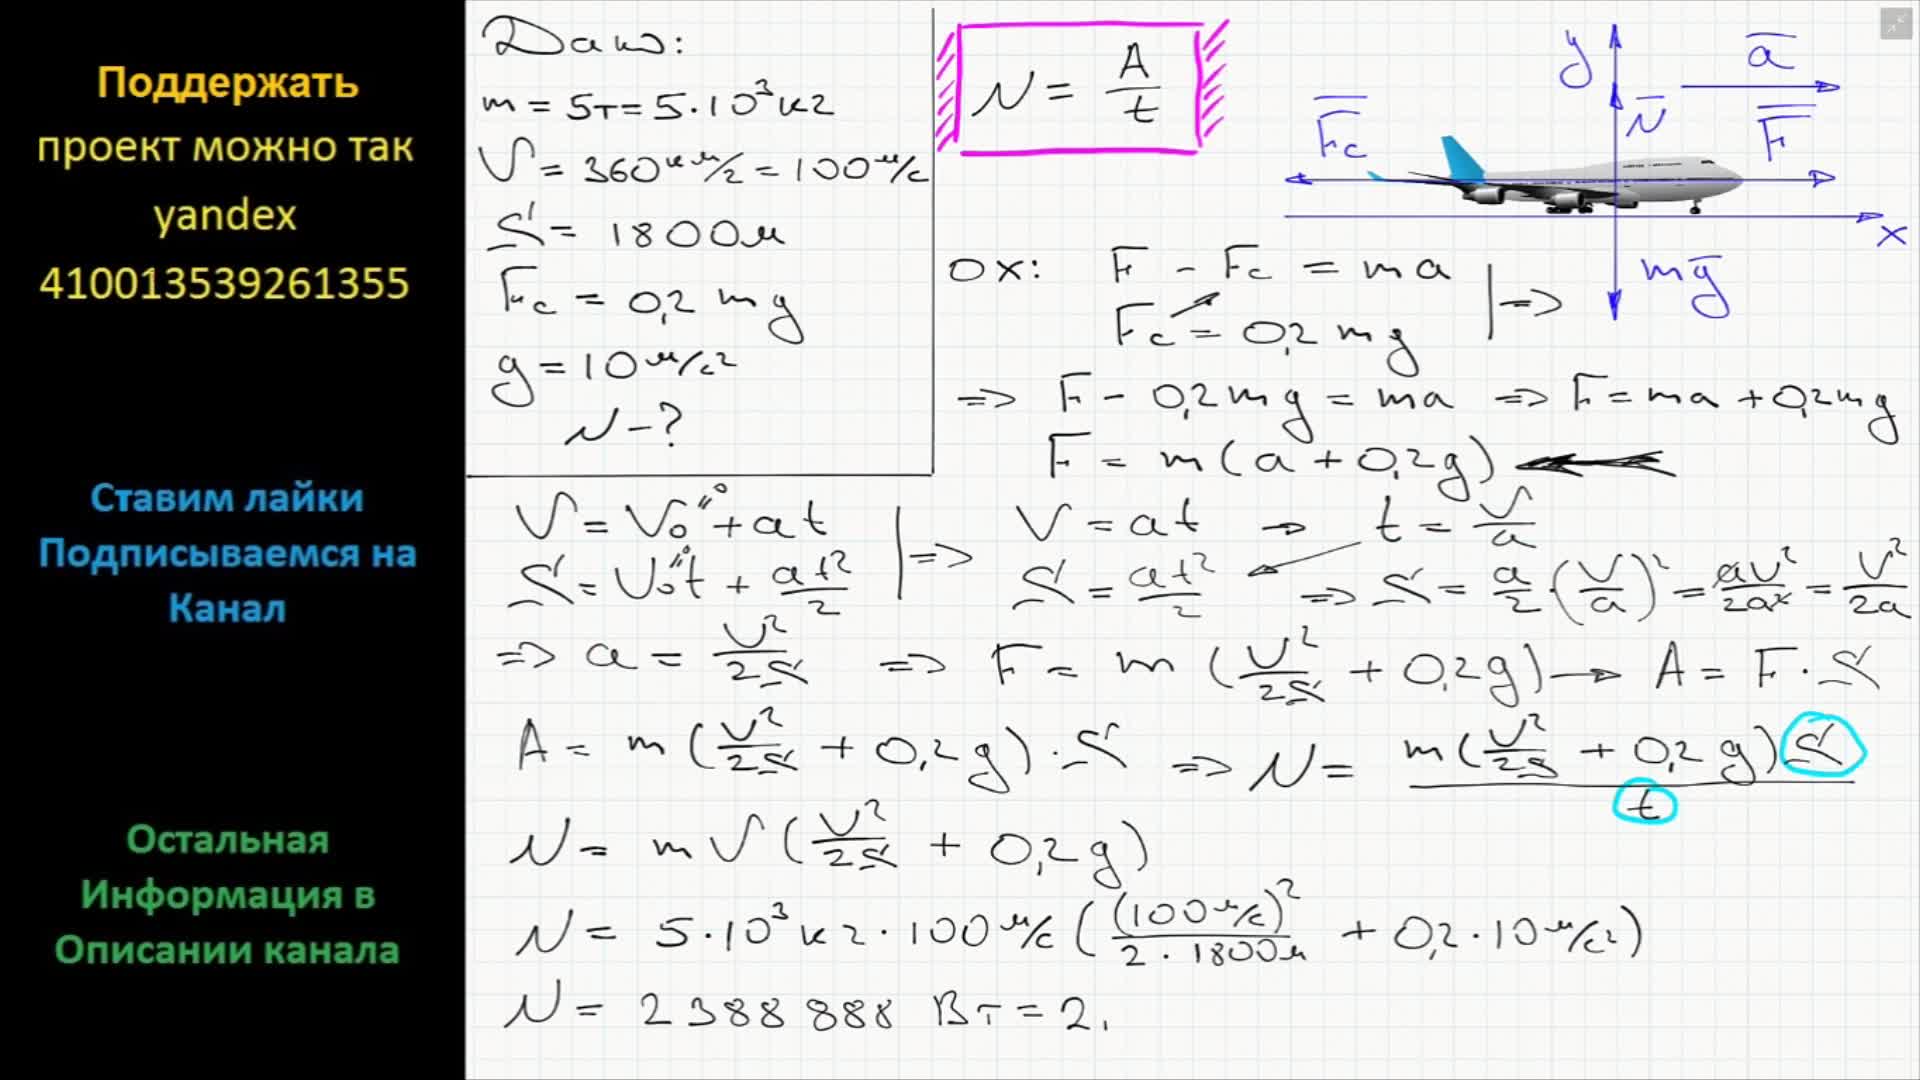 Поддержать
проект можно так
yandex
410013539261355
Ставим лайки
Подписываемся на
Канал
Остальная
Информация в
Описании канала
Дано:
m = 5т = 5·10³ кг
V = 360 км/г = 100 м/с
S = 1800 м
Fс = 0,2 mg
g = 10 м/с²
N - ?
N = A/t
y
a
N
Fc
F
x
mg
OX: F - Fc = ma | =>
Fc = 0,2 mg
=> F - 0,2mg = ma => F = ma + 0,2mg
F = m(a + 0,2g)
V = V₀"⁰ + at | => V = at → t = V/a
S = V₀"⁰t + at²/2 S = at²/2 => S = a/2 · (V/a)² = aV²/2a² = V²/2a
=> a = V²/2S => F = m (V²/2S + 0,2g) → A = F · S
A = m (V²/2S + 0,2g) · S => N = m(V²/2S + 0,2g)S/t
N = mV (V²/2S + 0,2g)
N = 5·10³ кг · 100 м/с ((100 м/с)²/2 · 1800м + 0,2 · 10 м/с²)
N = 2388888 Вт = 2,